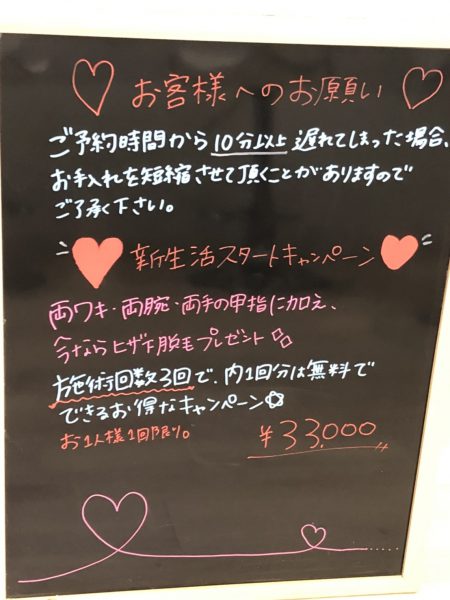 お客様へのお願い
ご予約時間から10分以上遅れてしまった場合、
お手入れを短縮させて頂くことがありますので
ご了承下さい。
新生活スタートキャンペーン
両ワキ・両腕・両手の甲指に加え、
今ならヒザ下脱毛プレゼント
施術回数3回で、内1回分は無料で
できるお得なキャンペーン
お1人様1回限り。
¥33,000